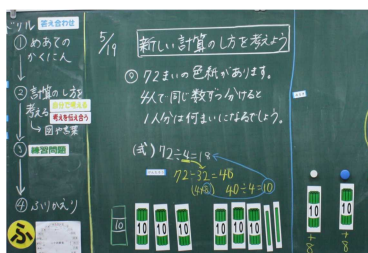 ドリル 答え合わせ
① めあての
かくにん
② 計算のし方を
考える 自分で考える
考えを伝え合う
→ 図や言葉
③ 練習問題
④ ふりかえり
ふ
5/19
新しい計算のし方を考えよう
◎ 72まいの色紙があります。
4人で同じ数ずつ分けると
1人分は何まいになるでしょう。
(式) 72÷4=18
72-32=40
40÷4=10
10
10 10 10 10 10 10
10 10
+8 +8